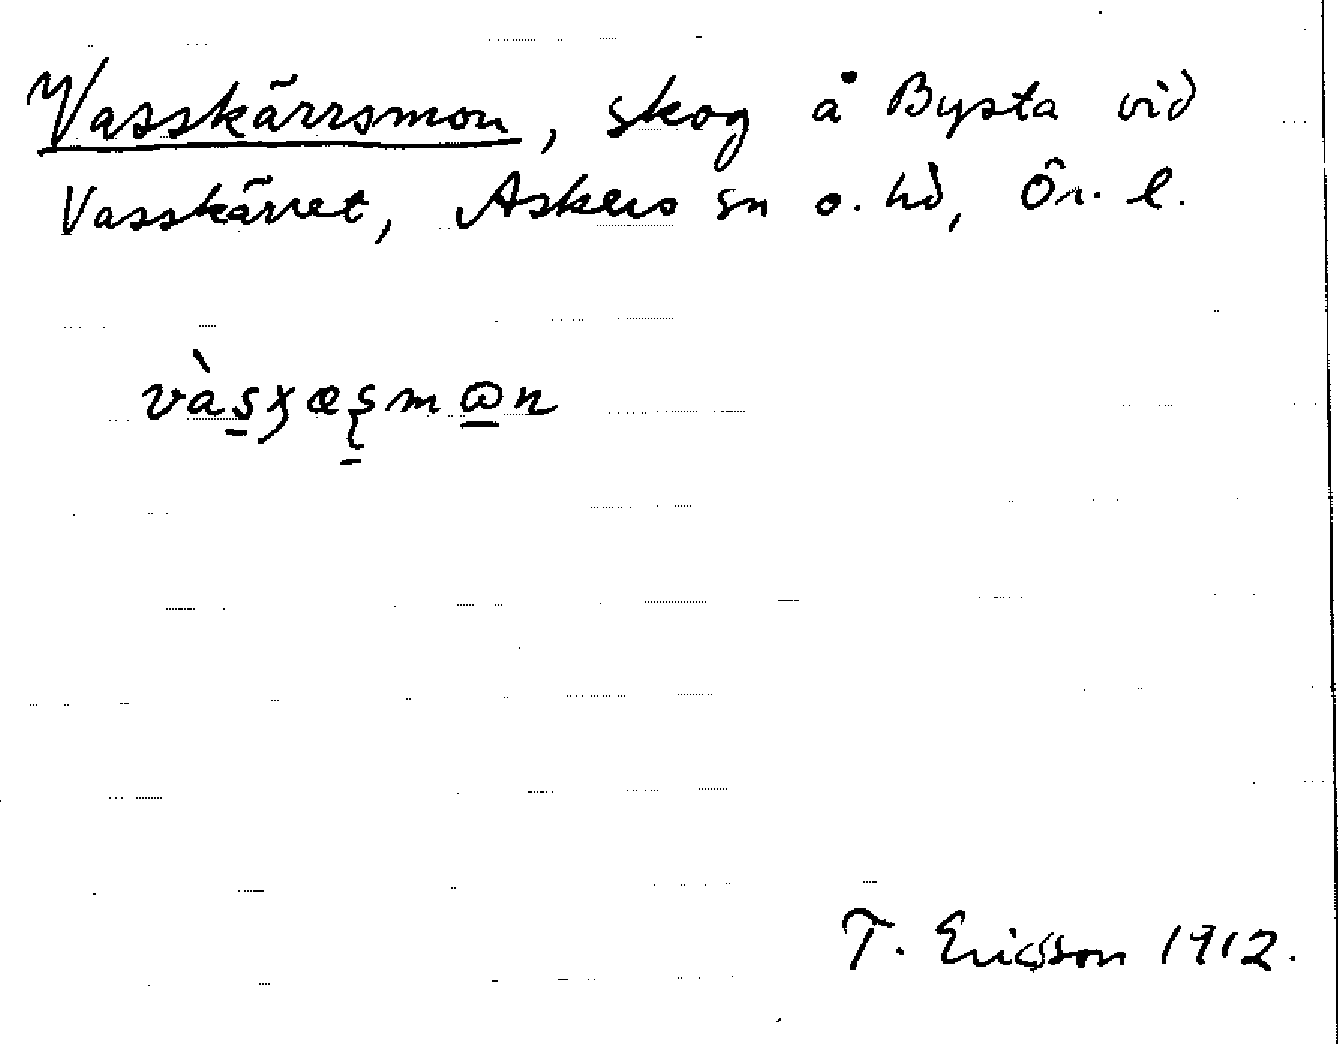 Vasskärrsmon, skog å Bysta vid
Vasskärret, Askers sn o. hd, Ör. l.
vàsχæʂmωn
T. Ericsson 1912.